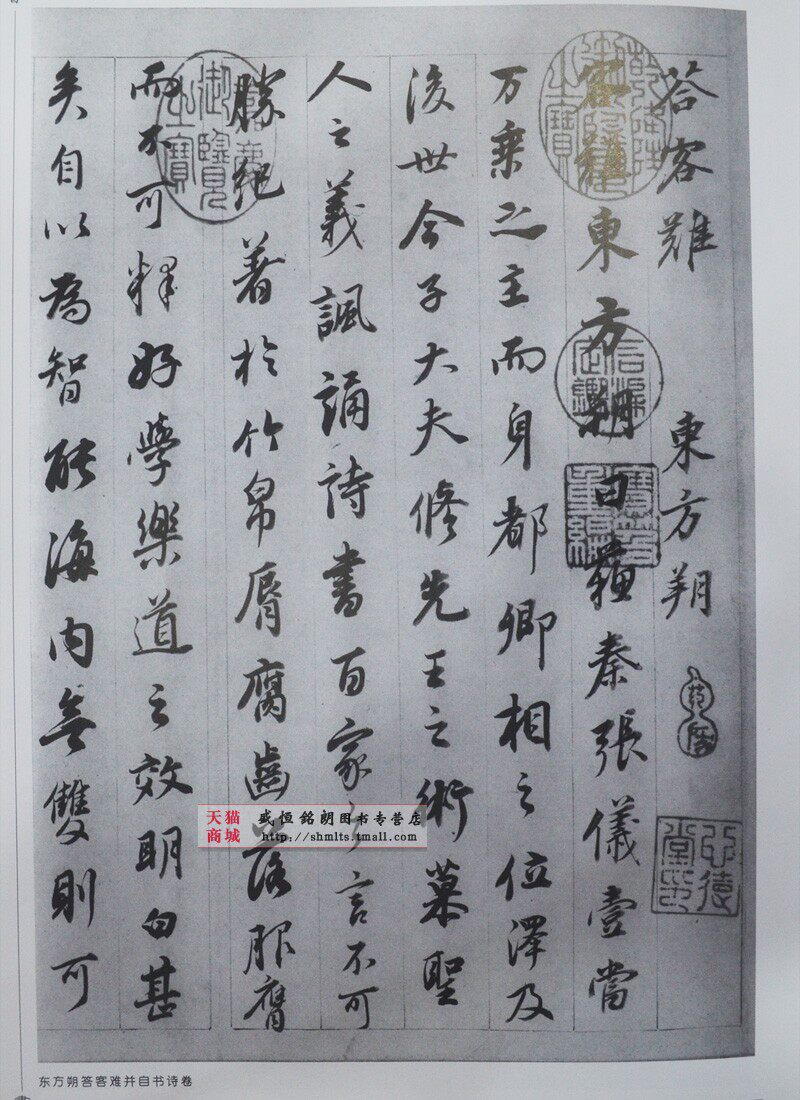 答客難 東方朔
客難東方朔曰蘇秦張儀壹當
万乘之主而身都卿相之位澤及
後世今子大夫修先王之術慕聖
人之義諷誦詩書百家之言不可
勝紀著於竹帛脣腐齒落服膺
而不可釋好學樂道之效明白甚
矣自以為智能海内無雙則可
乾隆御覽之寶
嘉慶御覽之寶
石渠定鑑
寶笈重編
天猫商城
盛恒铭朗图书专营店
http://shmlts.tmall.com
东方朔答客难并自书诗卷